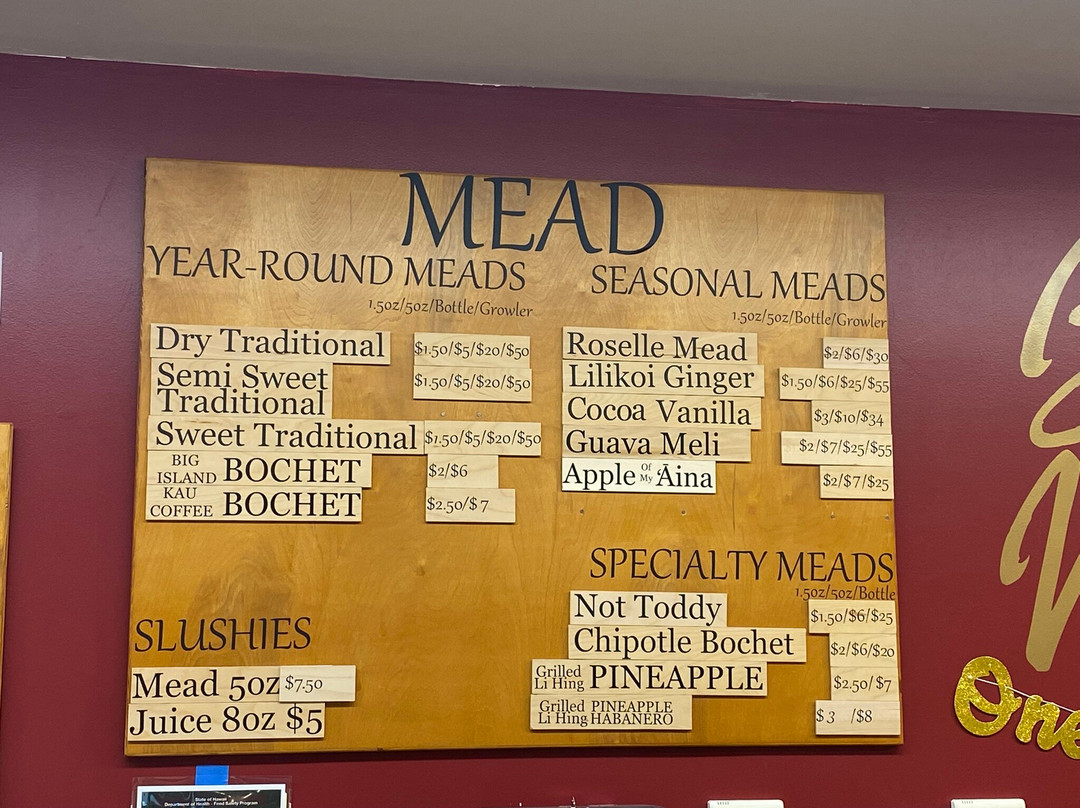 MEAD
YEAR-ROUND MEADS
1.5oz/5oz/Bottle/Growler
Dry Traditional $1.50/$5/$20/$50
Semi Sweet
Traditional $1.50/$5/$20/$50
Sweet Traditional $1.50/$5/$20/$50
BIG
ISLAND BOCHET $2/$6
KAU
COFFEE BOCHET $2.50/$7
SLUSHIES
Mead 5oz $7.50
Juice 8oz $5
SEASONAL MEADS
1.5oz/5oz/Bottle/Growler
Roselle Mead $2/$6/$30
Lilikoi Ginger $1.50/$6/$25/$55
Cocoa Vanilla $3/$10/$34
Guava Meli $2/$7/$25/$55
Apple Of My ʻĀina $2/$7/$25
SPECIALTY MEADS
1.5oz/5oz/Bottle
Not Toddy $1.50/$6/$25
Chipotle Bochet $2/$6/$20
Grilled
Li Hing PINEAPPLE $2.50/$7
Grilled PINEAPPLE
Li Hing HABANERO $3 /$8
One
State of Hawaii
Department of Health - Food Safety Program